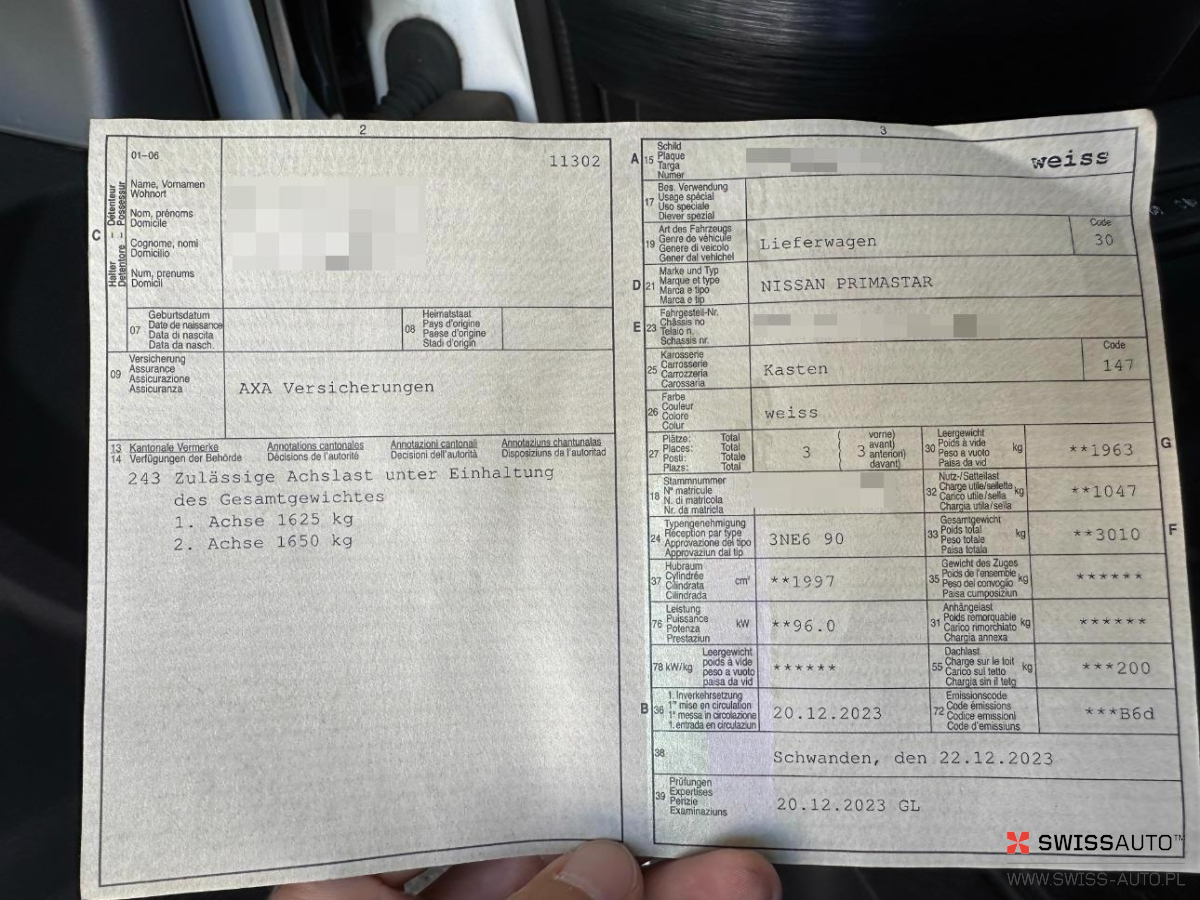 2
01–06
11302
C
Halter – Détenteur
Detentore – Possessur
Name, Vornamen
Wohnort
Nom, prénoms
Domicile
Cognome, nomi
Domicilio
Num, prenums
Domicil
07
Geburtsdatum
Date de naissance
Data di nascita
Data da nasch.
08
Heimatstaat
Pays d'origine
Paese d'origine
Stadi d'origin
09
Versicherung
Assurance
Assicurazione
Assicuranza
AXA Versicherungen
13 Kantonale Vermerke Annotations cantonales Annotazioni cantonali Annotaziuns chantunalas
14 Verfügungen der Behörde Décisions de l'autorité Decisioni dell'autorità Disposiziuns da l'autoritad
243 Zulässige Achslast unter Einhaltung
des Gesamtgewichtes
1. Achse 1625 kg
2. Achse 1650 kg
3
A 15
Schild
Plaque
Targa
Numer
weiss
17
Bes. Verwendung
Usage spécial
Uso speciale
Diever spezial
19
Art des Fahrzeugs
Genre de véhicule
Genere di veicolo
Gener dal vehichel
Lieferwagen
Code
30
D 21
Marke und Typ
Marque et type
Marca e tipo
Marca e tip
NISSAN PRIMASTAR
E 23
Fahrgestell-Nr.
Châssis no
Telaio n.
Schassis nr.
25
Karosserie
Carrosserie
Carrozzeria
Carossaria
Kasten
Code
147
26
Farbe
Couleur
Colore
Colur
weiss
27
Plätze: Total
Places: Total
Posti: Totale
Plazs: Total
3
( vorne)
3 avant)
anterion)
( davant)
30
Leergewicht
Poids à vide
Peso a vuoto
Paisa da vid
kg
**1963
G
18
Stammnummer
N° matricule
N. di matricola
Nr. da matricla
32
Nutz-/Sattellast
Charge utile/sellette
Carico utile/sella
Chargia utila/sella
kg
**1047
24
Typengenehmigung
Réception par type
Approvazione del tipo
Approvaziun dal tip
3NE6 90
33
Gesamtgewicht
Poids total
Peso totale
Paisa totala
kg
**3010
F
37
Hubraum
Cylindrée
Cilindrata
Cilindrada
cm³
**1997
35
Gewicht des Zuges
Poids de l'ensemble
Peso del convoglio
Paisa cumposiziun
kg
******
76
Leistung
Puissance
Potenza
Prestaziun
kW
**96.0
31
Anhängelast
Poids remorquable
Carico rimorchiato
Chargia annexa
kg
******
78 kW/kg
Leergewicht
poids à vide
peso a vuoto
paisa da vid
******
55
Dachlast
Charge sur le toit
Carico sul tetto
Chargia sin il tetg
kg
***200
B 36
1. Inverkehrsetzung
1re mise en circulation
1a messa in circolazione
1. entrada en circulaziun
20.12.2023
72
Emissionscode
Code émissions
Codice emissioni
Code d'emissiuns
***B6d
38
Schwanden, den 22.12.2023
39
Prüfungen
Expertises
Perizie
Examinaziuns
20.12.2023 GL
SWISSAUTO™
WWW.SWISS-AUTO.PL